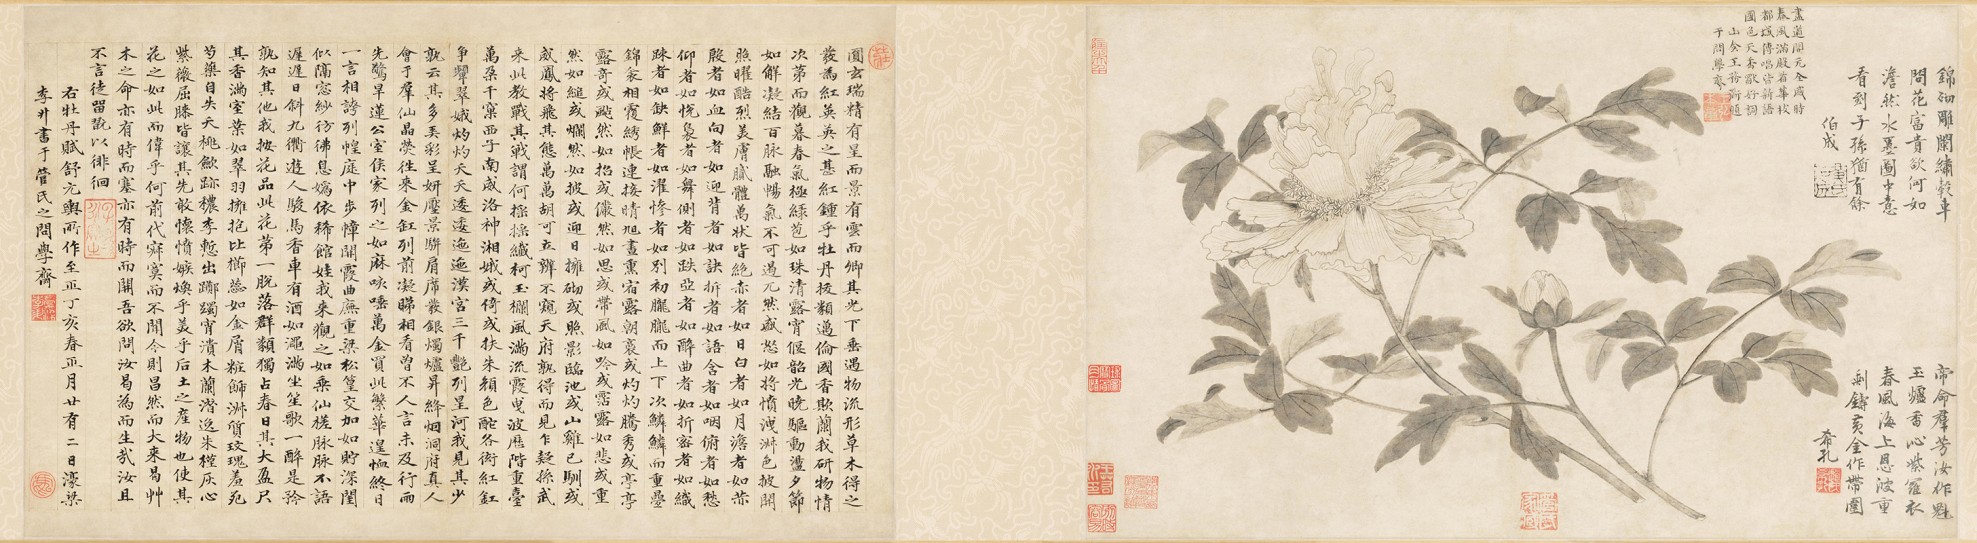 錦砌雕闌繡轂車
問花富貴欲何如
澹然水墨圖中意
看到子孫猶有餘
伯成
帝命羣芳汝作魁
玉爐香沁紫羅衣
春風海上恩波重
剩鑄黃金作帶圍
希孔
盡道開元全盛時
春風滿殿看華枝
都城傳唱皆新語
國色天香好詞
山王務道
于問學齋
圓玄瑞精有星而景有雲而卿其光下垂遇物流形草木得之
發為紅英英之甚紅鍾乎牡丹拔類邁倫國香欺蘭我研物情
次第而觀暮春氣極綠苞如珠清露宵偃韶光曉驅動盪夕節
如解凝結百脉融暢氣不可遏兀然盛怒如將憤洩淋色披開
照曜酷烈美膚膩體萬狀皆絕赤者如日白者如月澹者如赭
殷者如血向者如迎背者如訣折者如語含者如咽俯者如愁
仰者如悅裊者如舞側者如跌亞者如醉曲者如折密者如織
踈者如缺鮮者如濯慘者如別初朧朧而上下次鱗鱗而重疊
錦衾相覆繡帳連接晴旭晝熏宿露朝裛或灼灼騰秀或亭亭
露奇或颭然如招或儼然如思或帶風如吟或霑露如悲或重
然如縋或爛然如披或迎日擁砌或照影臨池或山雞已馴或
威鳳將飛其態萬萬胡可立辨不窺天府孰得而見乍疑孫武
來此教戰其戰謂何搖搖纖柯玉欄風滿流霞成波歷階重臺
萬朵千窠西子南威洛神湘娥或倚或扶朱顏色酡各衒紅缸
爭顰翠娥灼灼夭夭逶逶迤迤漢宮三千艷列星河我見其少
孰云其多弄彩呈妍壓景駢肩席發銀燭爐昇絳烟洞府真人
會于羣仙晶熒往來金缸列前凝睇相看曾不人言未及行雨
先驚旱蓮公室侯家列之如麻咳唾萬金買此繁華遑恤終日
一言相誇列幄庭中步幛開霞曲廡重梁松篁交加如貯深閨
似隔窗紗彷彿息媯依稀館娃我來觀之如乘仙槎脉脉不語
遲遲日斜九衢遊人駿馬香車有酒如澠滿坐笙歌一醉是矜
孰知其他我按花品此花第一脫落群類獨占春日其大盈尺
其香滿室葉如翠羽擁抱比櫛蕊如金屑粧飾淋質玫瑰羞死
芍藥自失夭桃歛跡穠李慙出躑躅宵潰木蘭潛逸朱槿灰心
紫薇屈膝皆讓其先敢懷憤嫉煥乎美乎后土之產物也使其
花之如此而偉乎何前代寂寞而不聞今則昌然而大來曷艸
木之命亦有時而塞亦有時而開吾欲問汝曷為而生哉汝且
不言徒留翫以徘徊
右牡丹賦舒元輿所作至正丁亥春正月廿有二日濠梁
李升書于管氏之問學齋